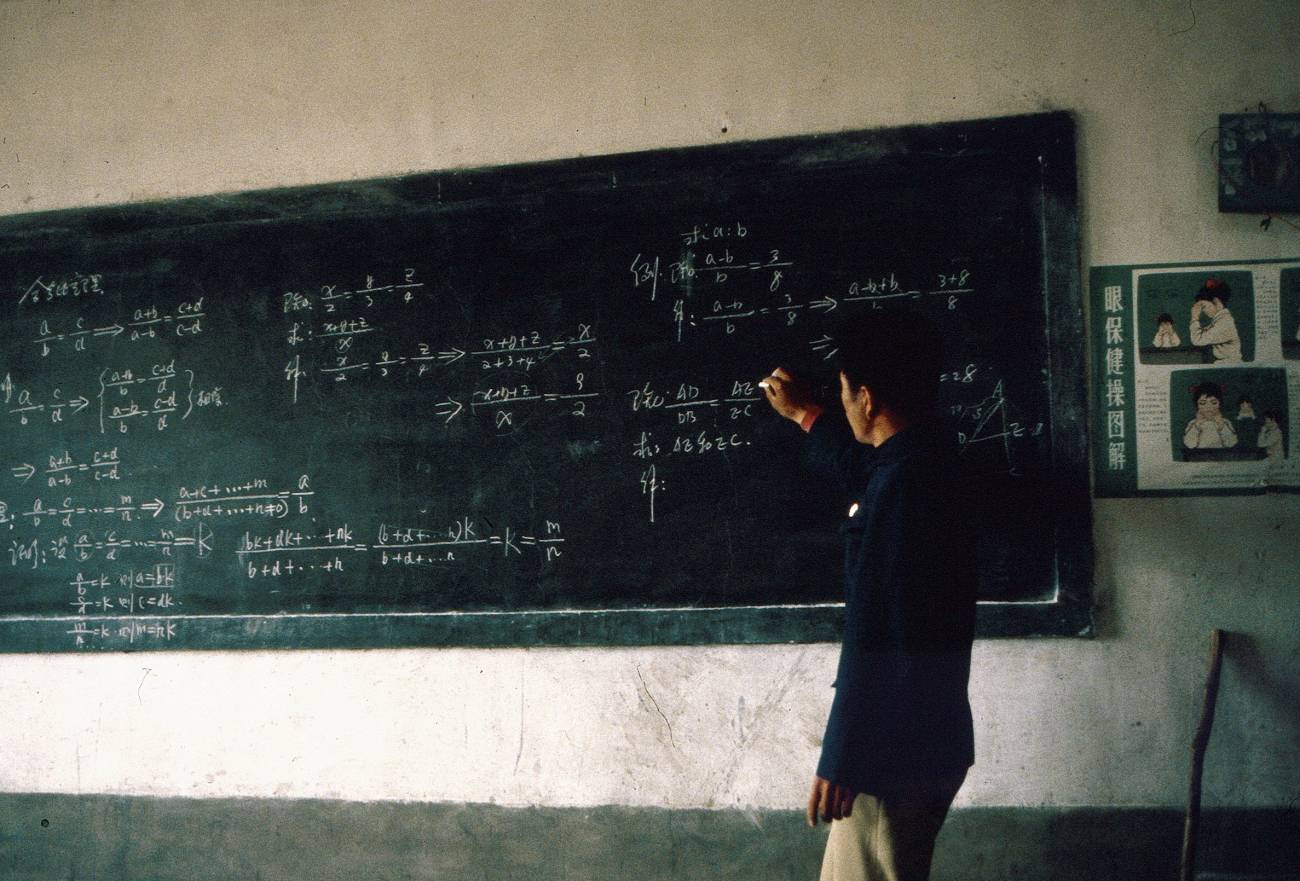 合分比定理
a/b = c/d ⇒ (a+b)/(a-b) = (c+d)/(c-d)
a/b = c/d ⇒ { (a+b)/b = (c+d)/d
(a-b)/b = (c-d)/d } 相除
⇒ (a+b)/(a-b) = (c+d)/(c-d)
a/b = c/d = … = m/n ⇒ (a+c+…+m)/(b+d+…+n≠0) = a/b
证明: 设 a/b = c/d = … = m/n = K
(bk+dk+…+nk)/(b+d+…+n) = (b+d+…n)K/(b+d+…n) = K = m/n
a/b = K 则 a = bk
= K 则 c = dk.
m/n = K 则 m = nK
已知: x/2 = y/3 = z/4
求: (x+y+z)/x
解: x/2 = y/3 = z/4 ⇒ (x+y+z)/(2+3+4) = x/2
⇒ (x+y+z)/x = 9/2
求 a:b
例. 已知: (a-b)/b = 3/8
解: (a-b)/b = 3/8 ⇒ (a-b+b)/b = (3+8)/8
⇒
已知: AD/DB = AE/EC
=28
求: AE和EC.
解:
A
D
E
眼保健操图解